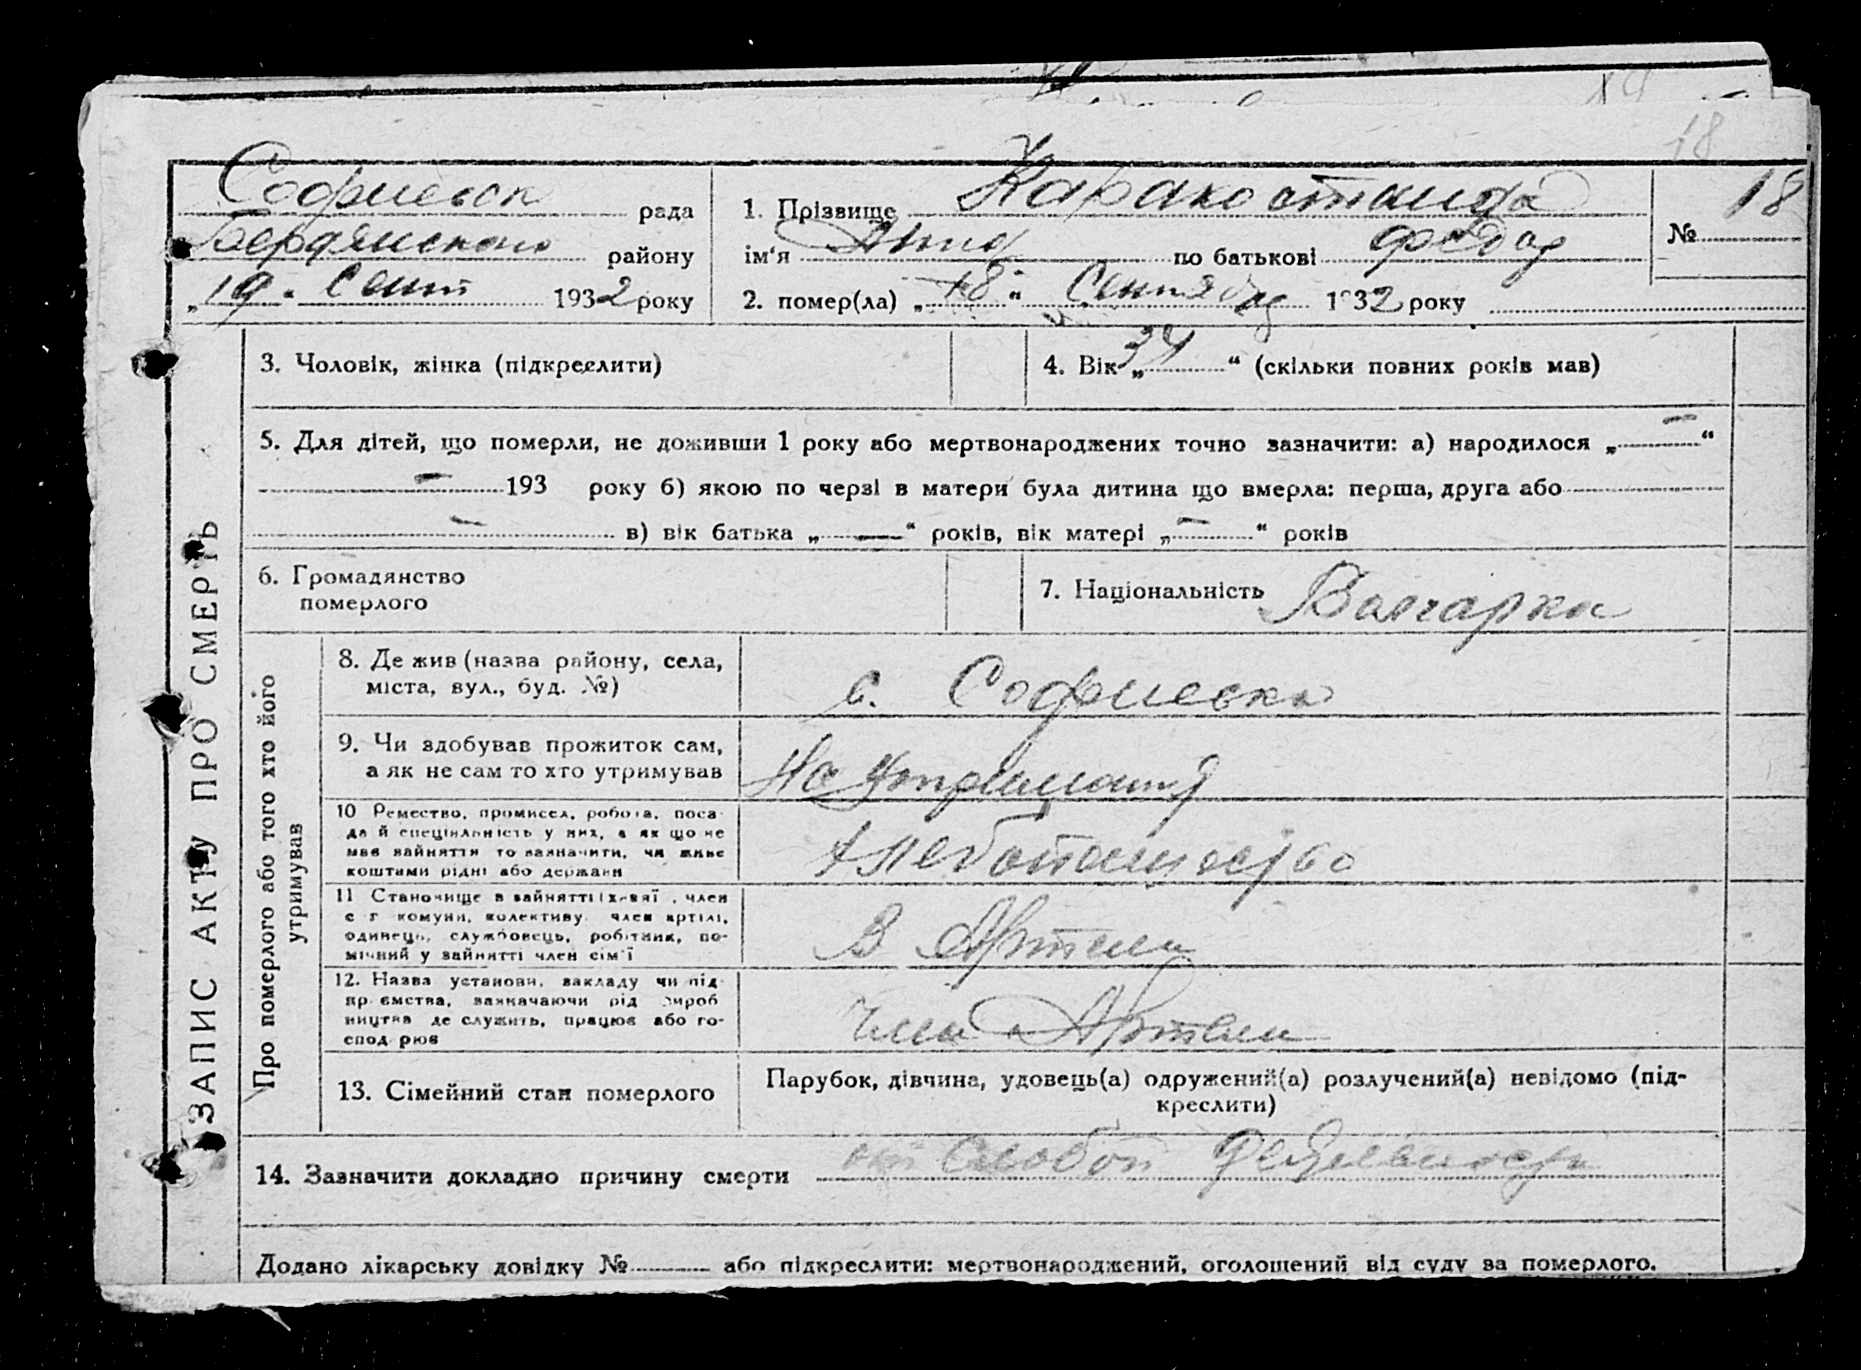 18
Софиевск рада
Бердянского району
„19“ Сент 1932 року
1. Прізвище Каракостанда
ім'я Анна по батькові Федор
2. помер(ла) „18“ Сентября 1932 року
№ 18
3. Чоловік, жінка (підкреслити)
4. Вік „34“ (скільки повних років мав)
5. Для дітей, що померли, не доживши 1 року або мертвонароджених точно зазначити: а) народилося „—“
— 193 року б) якою по черзі в матери була дитина що вмерла: перша, друга або
— в) вік батька „—“ років, вік матері „—“ років
6. Громадянство
померлого
7. Національність Болгарка
ЗАПИС АКТУ ПРО СМЕРТЬ
Про померлого або того хто його
утримував
8. Де жив (назва району, села,
міста, вул., буд. №)
с. Софиевка
9. Чи здобував прожиток сам,
а як не сам то хто утримував
На утримання
10 Ремество, промисел, робота, поса-
да й спеціяльність у них, а як що не
мав зайняття то зазначити, чи живе
коштами рідні або держави
хлебопашество
11 Становище в зайнятті , член
с г комуни, колективу член артілі,
одинець, службовець, робітник, по-
мічний у зайнятті член сім'ї
В Артели
12. Назва установи, закладу чи під-
приємства, зазначаючи рід вироб
ництва де служить, працює або го-
сподарює
Член Артели
13. Сімейний стан померлого
Парубок, дівчина, удовець(а) одружений(а) розлучений(а) невідомо (під-
креслити)
14. Зазначити докладно причину смерти от слабой
Додано лікарську довідку № або підкреслити: мертвонароджений, оголошений від суду за померлого.